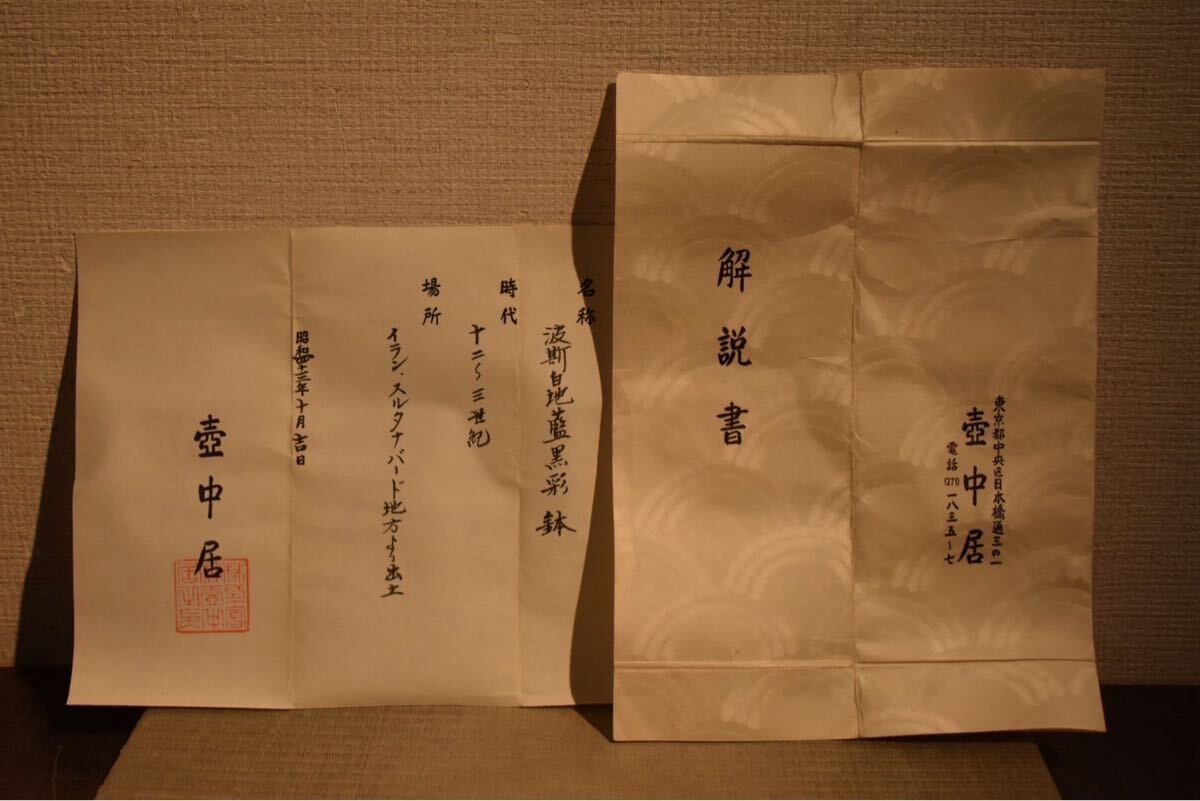 解説書
東京都中央区日本橋通三の一
壺中居
電話(271)一八三五〜七
名称
波斯白地藍黒彩鉢
時代
十二〜三世紀
場所
イラン・スルタナバード地方より出土
年十月吉日
壺中居